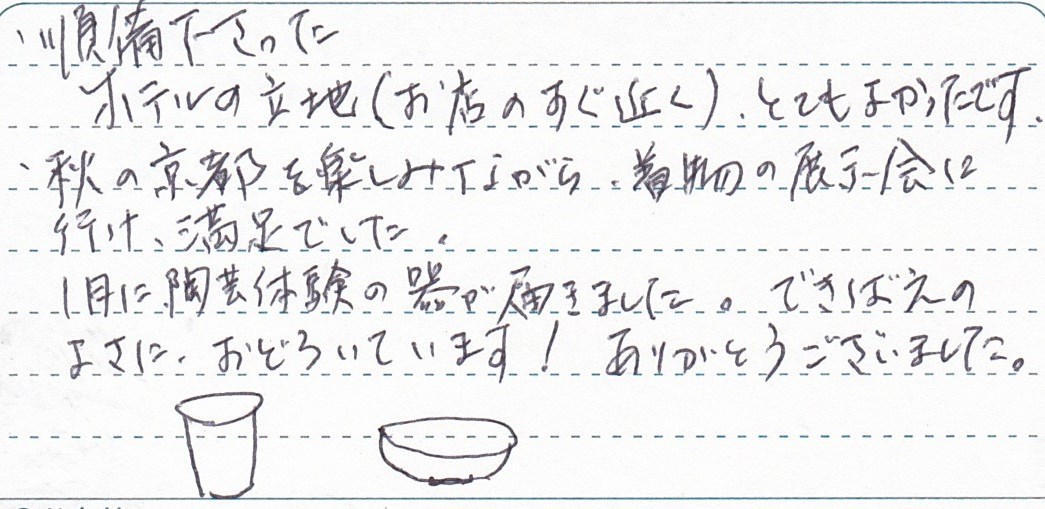 ・順備下さった
ホテルの立地(お店のすぐ近く)、とてもよかったです。
・秋の京都を楽しみながら、着物の展示会に
行け、満足でした。
1月に陶芸体験の器が届きました。できばえの
よさに、おどろいています! ありがとうございました。